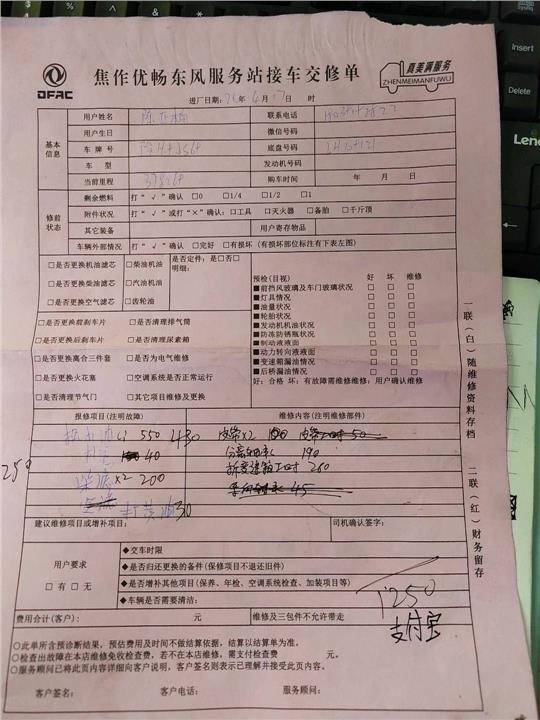 DFAC
焦作优畅东风服务站接车交修单
真美满服务
ZHENMEIMANFUWU
进厂日期: 年 4 月 17 日 时
基本信息
用户姓名 联系电话
用户生日 微信号码
车牌号 底盘号码
车型 发动机号码
当前里程 购车时间 年 月 日
修前状态
剩余燃料 打“√”确认 □0 □1/4 □1/2 □1
附件状况 打“√”或打“×”确认:□工具 □灭火器 □备胎 □千斤顶
其它装备 用户寄存物品
车辆外部情况 打“√”确认 □完好 □有损坏(有损坏部位标注有下表左图)
□是否更换机油滤芯 □柴油机油
□是否更换柴油滤芯 □汽油机油
□是否更换空气滤芯 □齿轮油
是否定件:是□否□
明细:
□是否更换前刹车片 □是否清理排气筒
□是否更换后刹车片 □是否清理尿素箱
□是否更换离合三件套 □是否为电气维修
□是否更换火花塞 □空调系统是否正常运行
□是否清理节气门 □其它项目维修及更换
预检(目视) 好 坏 维修
■前挡风玻璃及车门玻璃状况
■灯具情况
■油量状况
■轮胎状况
■发动机机油状况
■防冻防锈瓶状况
■制动液液面
■动力转向液液面
■变速箱漏油情况
■后桥漏油情况
好:合格 坏:有故障需维修维修:用户确认维修
一联(白)随维修资料存档
二联(红)财务留存
报修项目(注明故障) 维修内容(注明维修部件)
550 430 皮带x2 50
40 190
x2 200 260
250
45
打黄油30
建议维修项目或增补项目: 司机确认签字:
用户要求
□有 □无
◆交车时限
◆是否归还更换的备件(保修项目不退还旧件)
◆是否增补其他项目(保养、年检、空调系统检查、加装项目等)
◆车辆是否需要清洁:
1250
支付宝
费用合计(客户): 元 维修及三包件不允许带走
○此单所含预诊断结果,预估费用及时间不做结算依据,结算以结算单为准。
○检查出故障在本店维修免收检查费,若不在本店维修,需支付检查费 元。
○服务顾问已将此页内容详细向客户说明,客户签名则表示已理解并接受此页内容。
客户签名: 客户电话: 服务顾问:
Insert
Delete
Leno